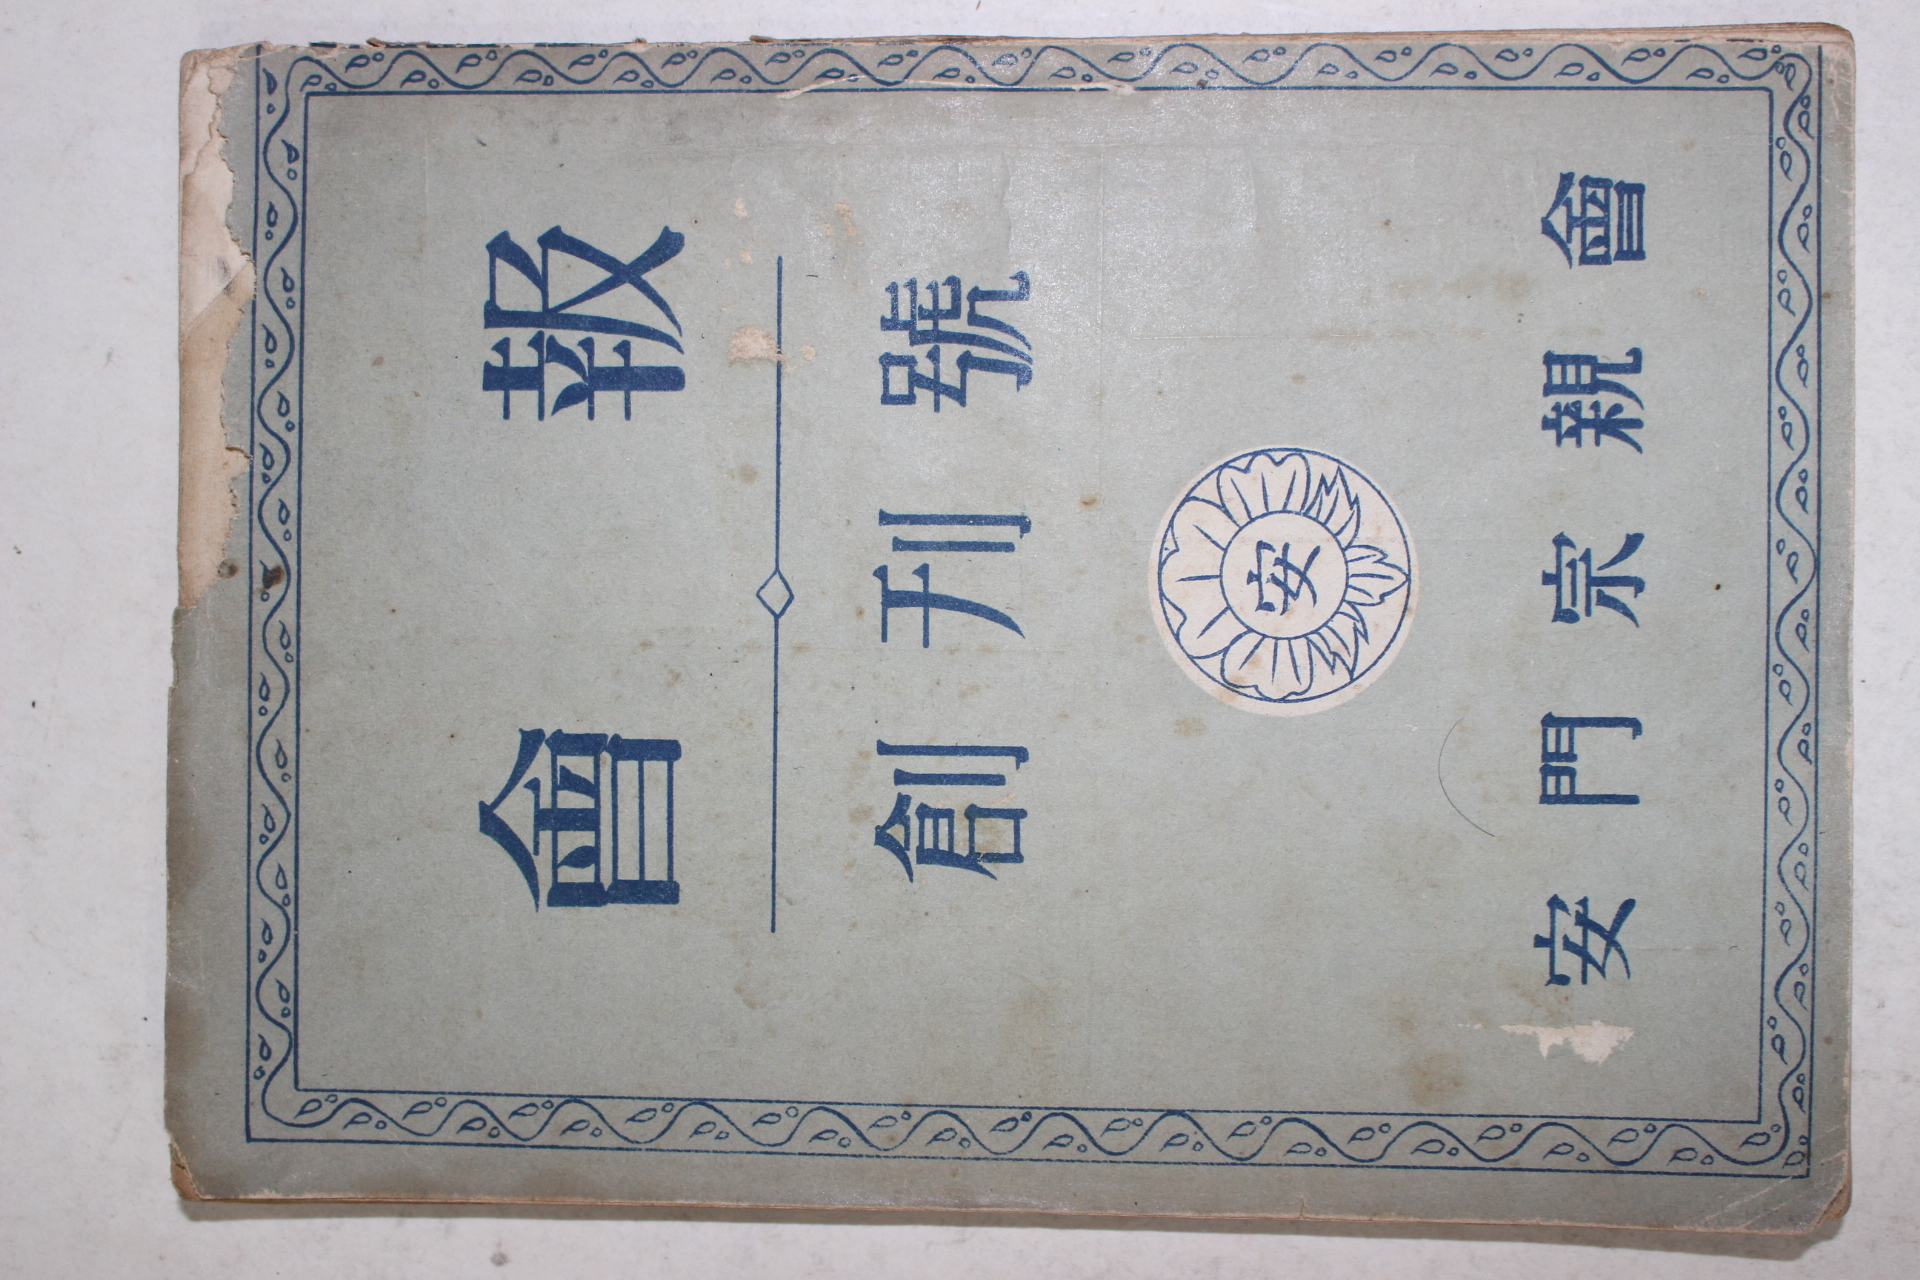 會報
創刊號
安
安門宗親會